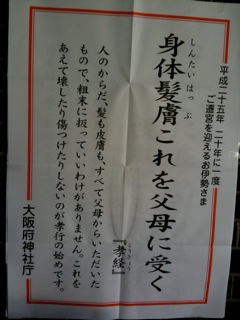 平成二十五年 二十年に一度
ご遷宮を迎えるお伊勢さま
しんたいはっぷ
身体髪膚これを父母に受く
こうきょう
『孝経』
人のからだ、髪も皮膚も、すべて父母からいただいた
もので、粗末に扱っていいわけがありません。これを
あえて壊したり傷つけたりしないのが孝行の始めです。
大阪府神社庁